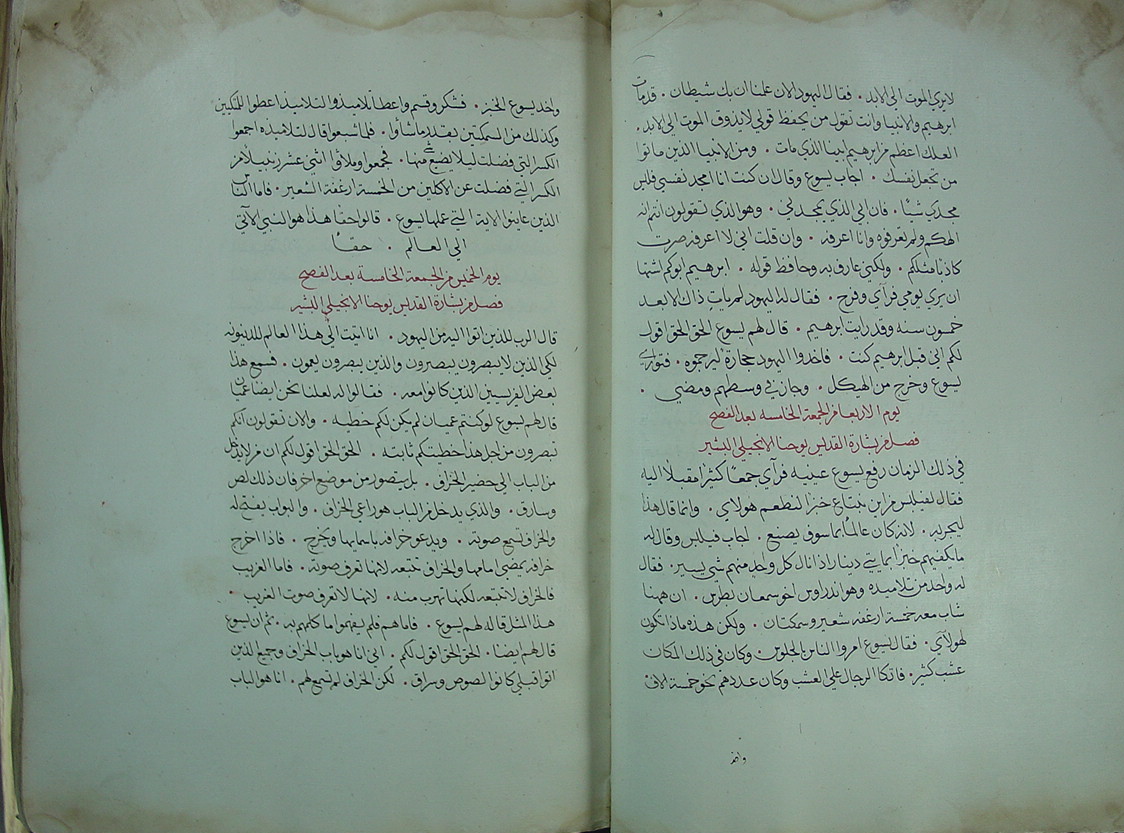 لا يري الموت الي الابد . فقال اليهود الان علمنا ان بك شيطان . قد مات
ابرهيم والانبيا وانت تقول من يحفظ قولي لا يذوق الموت الي الابد .
العلك اعظم من ابرهيم ابينا الذي مات . ومن الانبيا الذين ماتوا
من تجعل نفسك . اجاب يسوع وقال ان كنت انا امجد نفسي فليس
مجدي شيًا . فان ابي الذي يمجدني . وهو الذي تقولون انتم انه
الهكم ولم تعرفوه وانا اعرفه . وان قلت اني لا اعرفه صرت
كاذبًا مثلكم . ولكني عارف به وحافظ قوله . ابرهيم ابوكم اشتها
ان يري يومي فرآي وفرح . فقال له اليهود لم ياتِ ذاك لك بعد
خمسون سنه وقد رايت ابرهيم . قال لهم يسوع الحق الحق اقول
لكم اني قبل ابرهيم كنت . فاخدوا اليهود حجارة ليرجموه . فتواري
يسوع وخرج من الهيكل . وجاز في وسطهم ومضي .
يوم الاربعا من الجمعة الخامسه بعد الفصح
فصل من بشارة القديس يوحنا الانجيلي البشير
في ذلك الزمان رفع يسوع عينيه فرآي جمعًا كثيرًا مقبلًا اليه
فقال لفيلبس من اين نبتاع خبزًا لنطعم هولاي . وانما قال هذا
ليجربه . لانه كان عالمًا بما سوف يصنع . اجاب فيلبس وقال له
ما يكفيهم خبزًا بمايتي دينار اذا نال كل واحد منهم شي يسير . فقال
له واحد من تلاميده وهو اندراوس اخو سمعان بطرس . ان ههنا
شاب معه خمسة ارغفه شعير وسمكتان . ولكن هذه ماذا تكون
لهولاي . فقال يسوع امروا الناس بالجلوس . وكان في ذلك المكان
عشب كثير . فاتكا الرجال علي العشب وكان عددهم نحو خمسة الاف
واخد
واخد يسوع الخبز . فشكر وقسم واعطا تلاميذه والتلاميذ اعطوا للمتكيين
وكذلك من السمكتين بقدر ما شاؤا . فلما شبعوا قال لتلاميذه اجمعوا
الكسر التي فضلت ليلا يضيع شي منها . فجمعوا وملاؤا اثني عشر زنبيلًا من
الكسر التي فضلت عن الاكلين من الخمسة ارغفة الشعير . فاما الناس
الذين عاينوا الاية التي عملها يسوع . قالوا حقا هذا هو النبي الاتي
الي العالم . حقًا
يوم الخميس من الجمعة الخامسة بعد الفصح
فصل من بشارة القديس يوحنا الانجيلي البشير
قال الرب للذين اتوا اليه من اليهود . انا اتيت الي هذا العالم للدينونه
لكي الذين لا يبصرون يبصرون والذين يبصرون يعمون . فسمع هذا
بعض الفريسيين الذين كانوا معه . فقالوا له لعلنا نحن ايضا عميًا
قال لهم يسوع لو كنتم عميان لم يكن لكم خطيه . والان تقولون انكم
تبصرون من اجل هذا خطيتكم ثابته . الحق الحق اقول لكم ان من لا يدخل
من الباب الي حضير الخراف . بل يتصور من موضع اخر فان ذلك لص
وسارق . والذي يدخل من الباب هو راعي الخراف . والبواب يفتح له
والخراف تسمع صوته . ويدعو خرافه باسمايها ويخرج . فاذا اخرج
خرافه يمضي امامها والخراف تتبعه لانها تعرف صوته . فاما الغريب
فالخراف لا تتبعه لكنها تهرب منه . لانها لا تعرف صوت الغريب .
هذا المثل قاله لهم يسوع . فاما هم فلم يفهموا ما كلمهم به . ثم ان يسوع
قال لهم ايضًا . الحق الحق اقول لكم . اني انا هو باب الخراف وجميع الذين
اتوا قبلي كانوا لصوص وسراق . لكن الخراف لم تسمع لهم . انا هو الباب